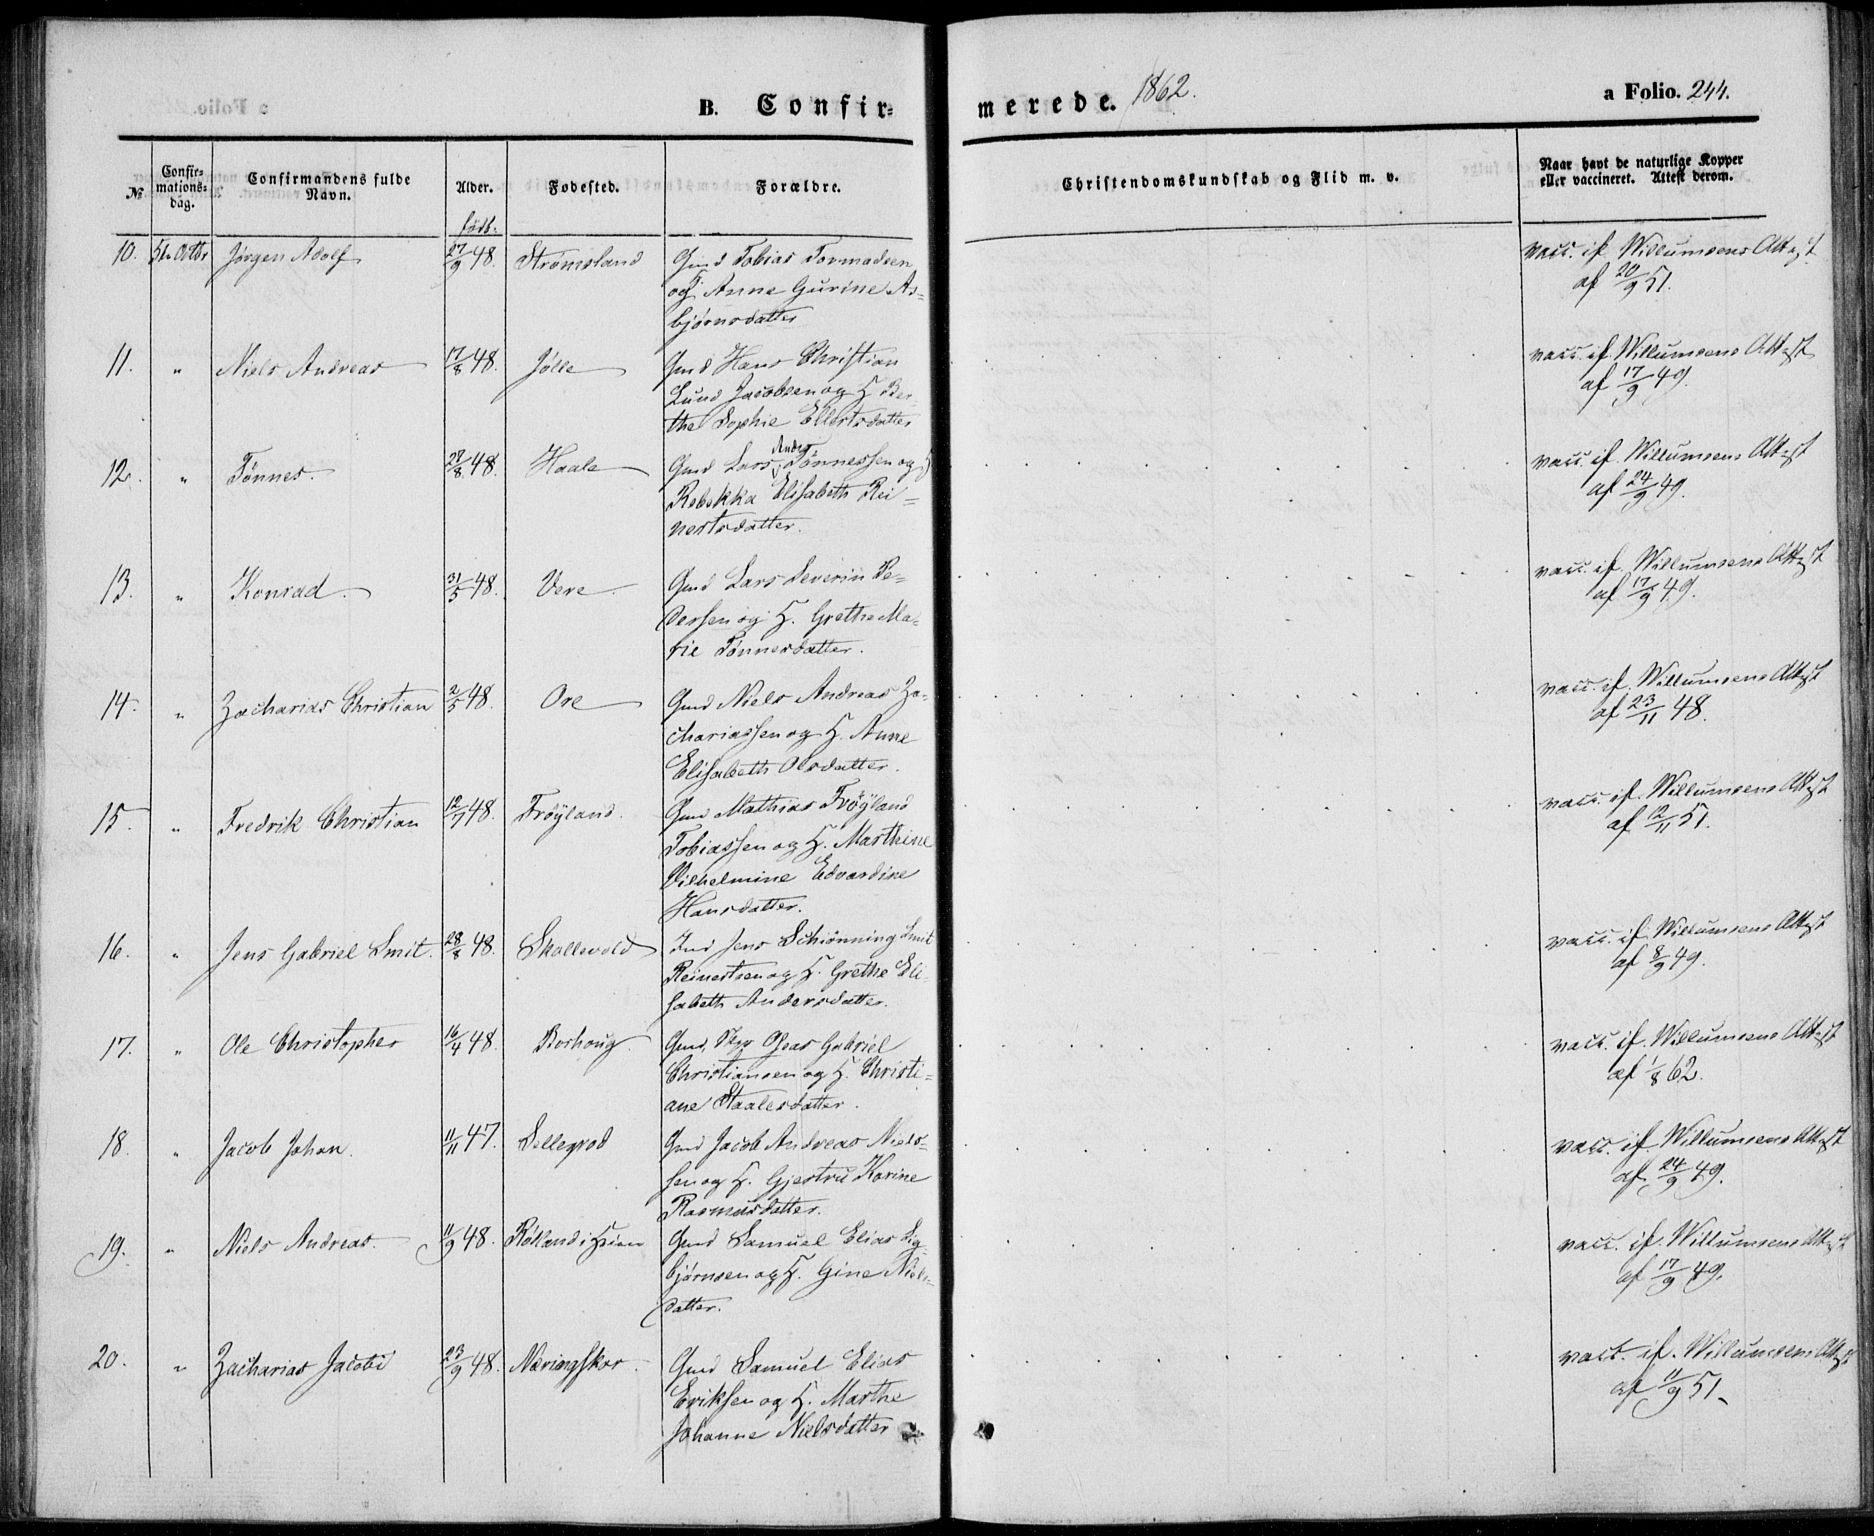 B. Confir-
merede. 1862.
a Folio. 244.
№
Confir-
mations-
dag.
Confirmandens fulde
Navn.
Alder.
Fødested.
Forældre.
Christendomskundskab og Flid m. v.
Naar havt de naturlige Kopper
eller vaccineret. Attest derom.
født.
10. 5te Octbr Jørgen Adolf 27/9 48. Strømsland Gmd Tobias Tormodsen vacc. if. Willumsens Attest
og Anne Gurine As- af 20/9 51.
bjørnsdatter
11. " Niels Andreas 17/8 48. Jølle Gmd Hans Christian vacc. if. Willumsens Attest
Lund Jacobsen og H. Ber- af 17/9 49.
the Sophie Ellertsdatter
12. " Tønnes. 28/8 48. Haale Gmd Lars Andr. Tønnessen og H vacc. if. Willumsens Attest
Rebekka Elisabeth Rei- af 24/9 49.
nertsdatter.
13. " Konrad. 31/5 48. Vere Gmd Lars Severin Pe- vacc. if. Willumsens Attest
dersen og H. Grethe Ma- af 17/9 49.
rie Tønnesdatter.
14. " Zacharias Christian 2/5 48. Ore Gmd Niels Andreas Za- vacc. if. Willumsens Attest
chariassen og H. Anne af 23/11 48.
Elisabeth Olsdatter.
15. " Fredrik Christian 12/7 48. Frøyland. Gmd Mathias Frøyland vacc. if. Willumsens Attest
Tobiassen og H. Marthine af 12/11 51.
Vilhelmine Edvardine
Hansdatter.
16. " Jens Gabriel Smit. 28/8 48. Skollevold Ind Jens Schiønning Smit vacc. if. Willumsens Attest
Reinertsen og H. Grethe Eli- af 8/9 49.
sabeth Andersdatter.
17. " Ole Christopher 16/4 48. Borhoug. Gmd, Oseas Gabriel vacc. if. Willumsens Attest
Christiansen og H. Christi- af 1/8 62.
ane Staalesdatter.
18. " Jacob Johan. 11/11 47. Sellegrod Gmd Jacob Andreas Niels- vacc. if. Willumsens Attest
sen og H. Gjertru Karine af 24/9 49.
Rasmusdatter.
19. " Niels Andreas. 11/9 48. Røiland i Gmd Samuel Elias Sig- vacc. if. Willumsens Attest
bjørnsen og H. Gine Niels- af 17/9 49.
datter.
20. " Zacharias Jacobi 23/9 48. Næringskor Gmd Samuel Elias vacc. if. Willumsens Attest
Eriksen og H. Marthe af 11/9 51.
Johanne Nielsdatter